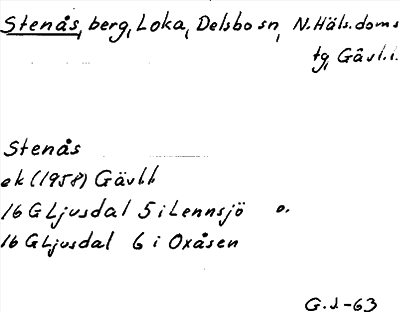 Stenås, berg, Loka, Delsbo sn, N.Häls.doms
tg, Gävl.l.
Stenås
ek (1958) Gävl.l.
16 G Ljusdal 5 i Lennsjö o.
16 G Ljusdal 6 i Oxåsen
G.J-63